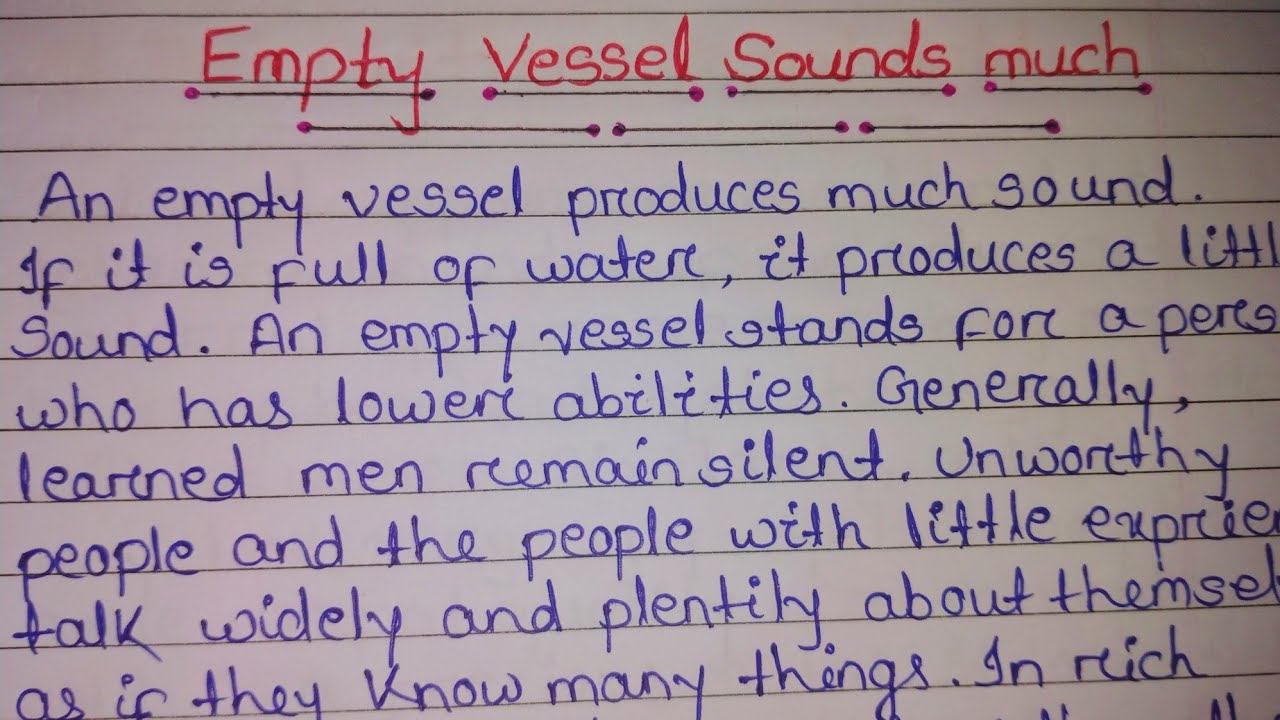 Empty Vessel Sounds much
An empty vessel produces much sound.
If it is full of water, it produces a littl
Sound. An empty vessel stands for a pers
who has lower abilities. Generally,
learned men remain silent. Unworthy
people and the people with little exprien
talk widely and plentily about themsel
as if they know many things. In rich